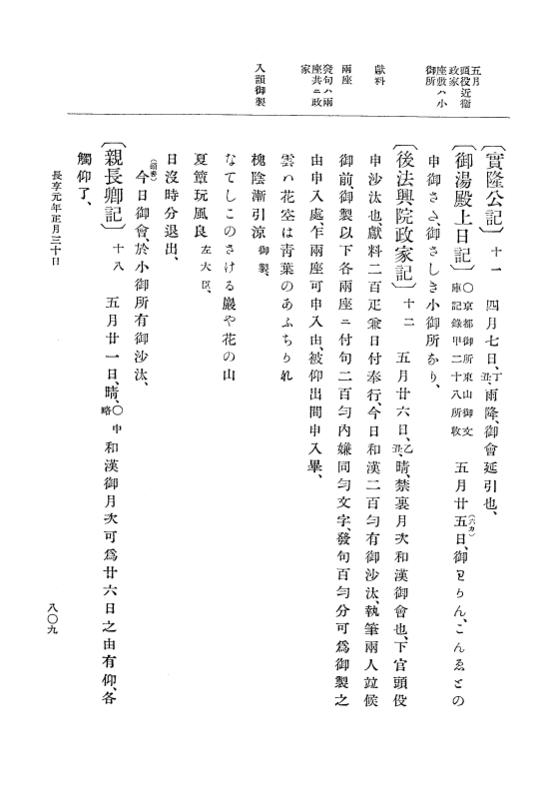 五月
頭役近衞
政家
座敷ハ小
御所
獻料
兩座
發句ハ兩
座共ニ政
家
入韻御製
〔實隆公記〕 十一 四月七日、丁丑、雨降、御會延引也、
〔御湯殿上日記〕 ○京都御所東山御文
庫記錄甲二十八所收 五月廿五(六カ)日、御わりん、こんゑとの
申御さた、御さしき小御所なり、
〔後法興院政家記〕 十二 五月廿六日、乙丑、晴、禁裏月次和漢御會也、下官頭役
申沙汰也、獻料二百疋兼日付奉行、今日和漢二百句有御沙汰、執筆兩人竝候
御前、御製以下各兩座ニ付句二百句內嫌同句文字、發句百句分可爲御製之
由申入處、乍兩座可申入由、被仰出間申入畢、
雲ハ花空は青葉のあふちかれ
槐陰漸引涼 御製、
なてしこのさける巖や花の山
夏簟玩風良 左大臣、
日沒時分退出、
(頭書)今日御會、於小御所有御沙汰、
〔親長卿記〕 十八 五月廿一日、晴、○中略 和漢御月次可爲廿六日之由有仰、各
觸仰了、
長享元年正月三十日
八〇九